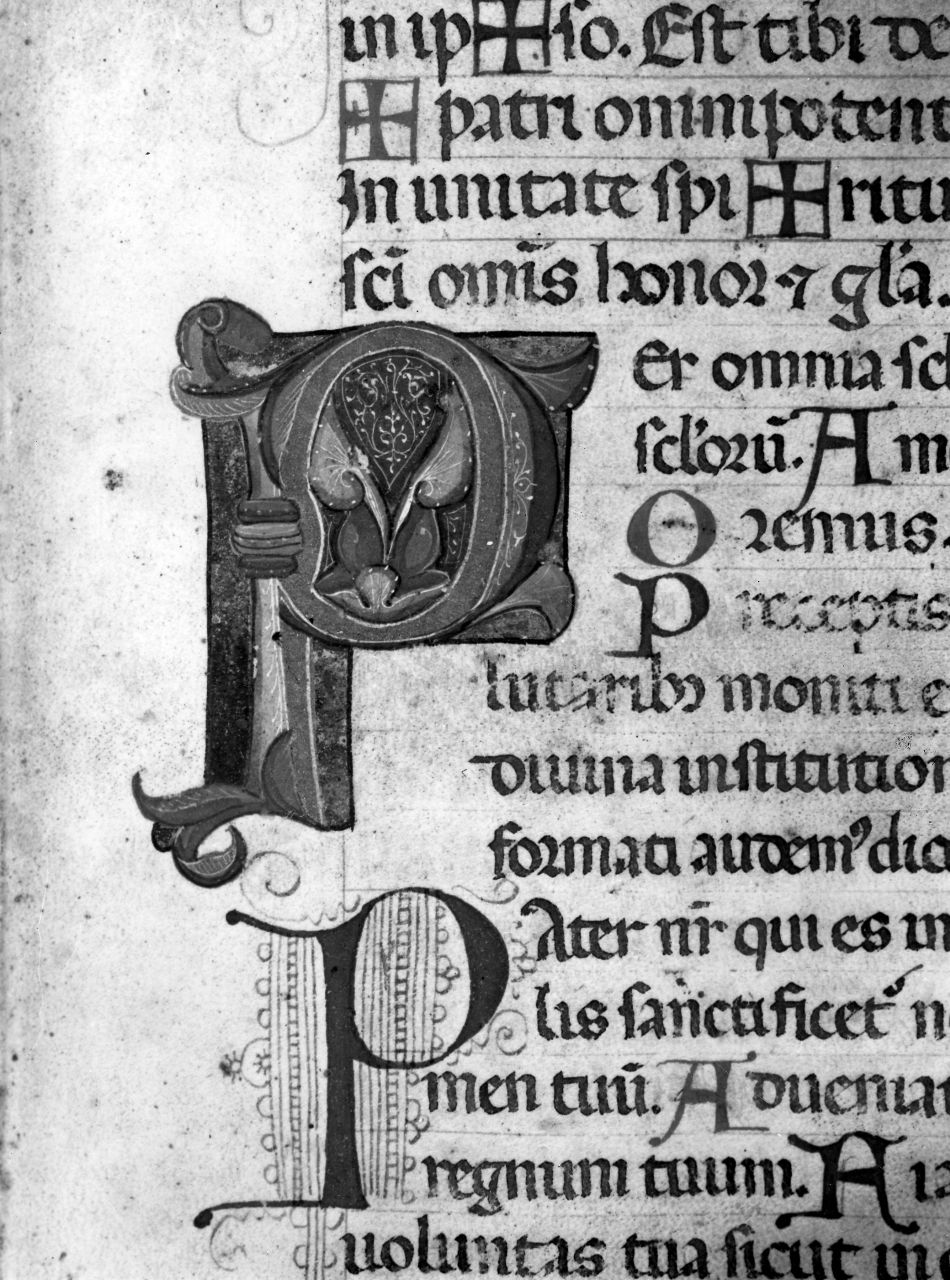 in ip✠so. Est tibi de
✠ patri omnipotent
In unitate spi✠ritu
sc̄i om̄is honor ⁊ gl'a.
PEr omnia scl
scl'oꝝ. Am
Oremus.
Preceptis
lutaribꝫ moniti e
diuina institution
formati audemꝰ dic
PAter nr̄ qui es in
lis sanctificetᷣ n
men tuū. Adueniat
regnum tuum. Fia
uoluntas tua sicut in